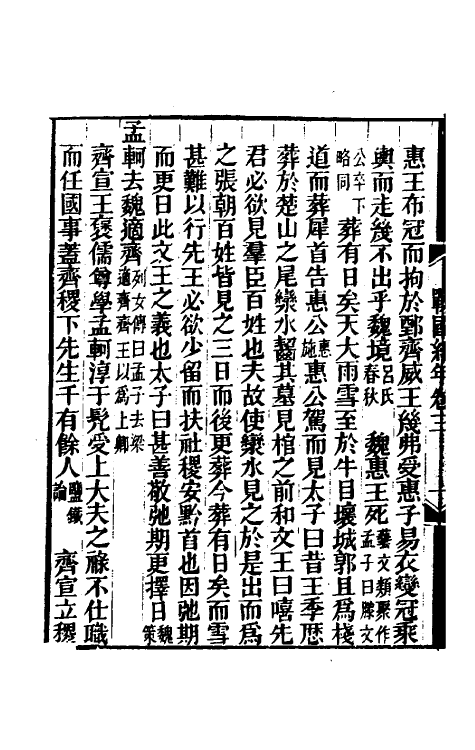 惠王布冠而拘於鄄齊威王幾弗受惠子易衣變冠乘
輿而走幾不出乎魏境呂氏春秋　魏惠王死藝文類聚作孟子曰滕文
公卒下略同　葬有日矣天大雨雪至於牛目壞城郭且為棧
道而葬犀首告惠公惠施惠公駕而見太子曰昔王季歷
葬於楚山之尾欒水齧其墓見棺之前和文王曰嘻先
君必欲見羣臣百姓也夫故使欒水見之於是出而為
之張朝百姓皆見之三日而後更葬今葬有日矣而雪
甚難以行先王必欲少留而扶社稷安黔首也因弛期
而更日此文王之義也太子曰甚善敬弛期更擇日魏策
孟軻去魏適齊列女傳曰孟子去梁適齊齊王以為上卿
齊宣王褒儒尊學孟軻淳于髡受上大夫之祿不仕職
而任國事蓋齊稷下先生千有餘人鹽鐵論　齊宣立稷
戰國紀年卷三